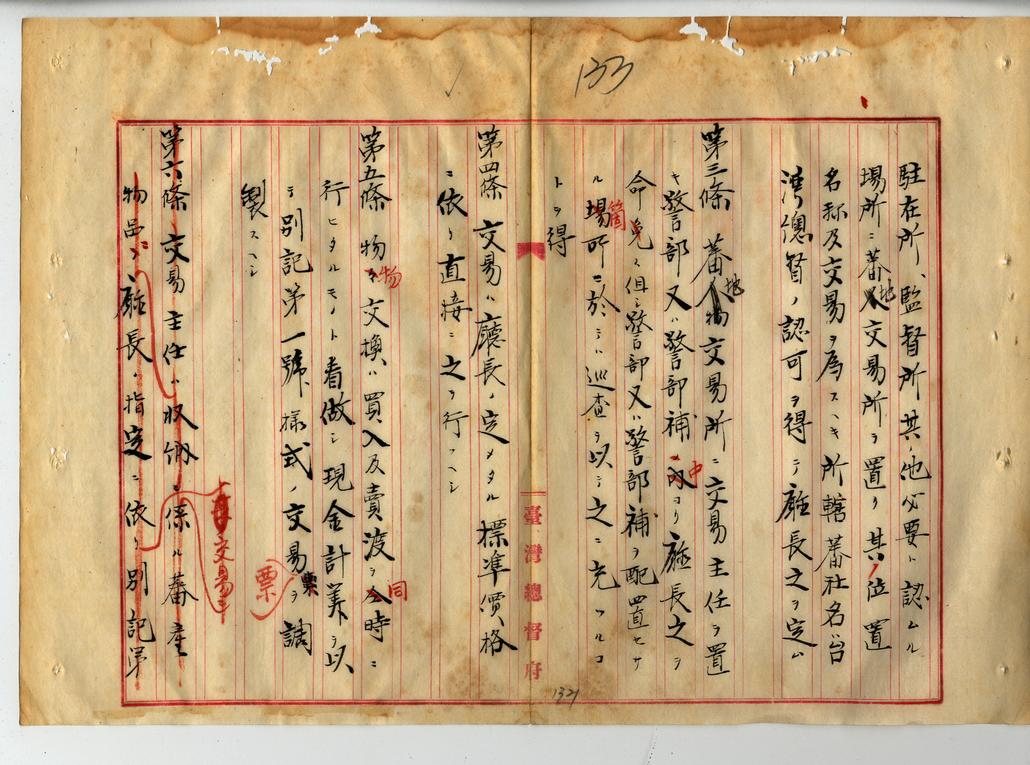 133
駐在所、監督所其ノ他必要ト認ムル
場所ニ蕃地交易所ヲ置ク其ノ位置
名称及交易ヲ為スヘキ所轄蕃社名ハ台
湾總督ノ認可ヲ得テ廳長之ヲ定ム
第三條 蕃地交易所ニ交易主任ヲ置
キ警部又ハ警部補ノ中ヨリ廳長之ヲ
命免ス但シ警部又ハ警部補ヲ配置セサ
ル箇所ニ於テハ巡査ヲ以テ之ニ充ツルコ
トヲ得
第四條 交易ハ廳長ノ定メタル標準價格
ニ依リ直接ニ之ヲ行フヘシ
第五條 物物交換ハ買入及賣渡ヲ同時ニ
行ヒタルモノト看做シ現金計算ヲ以
テ別記第一號様式ノ交易票ヲ調
製スヘシ
第六條 交易主任ハ収納ニ係ル蕃産
物品ヲ廳長ノ指定ニ依リ別記第
臺灣總督府